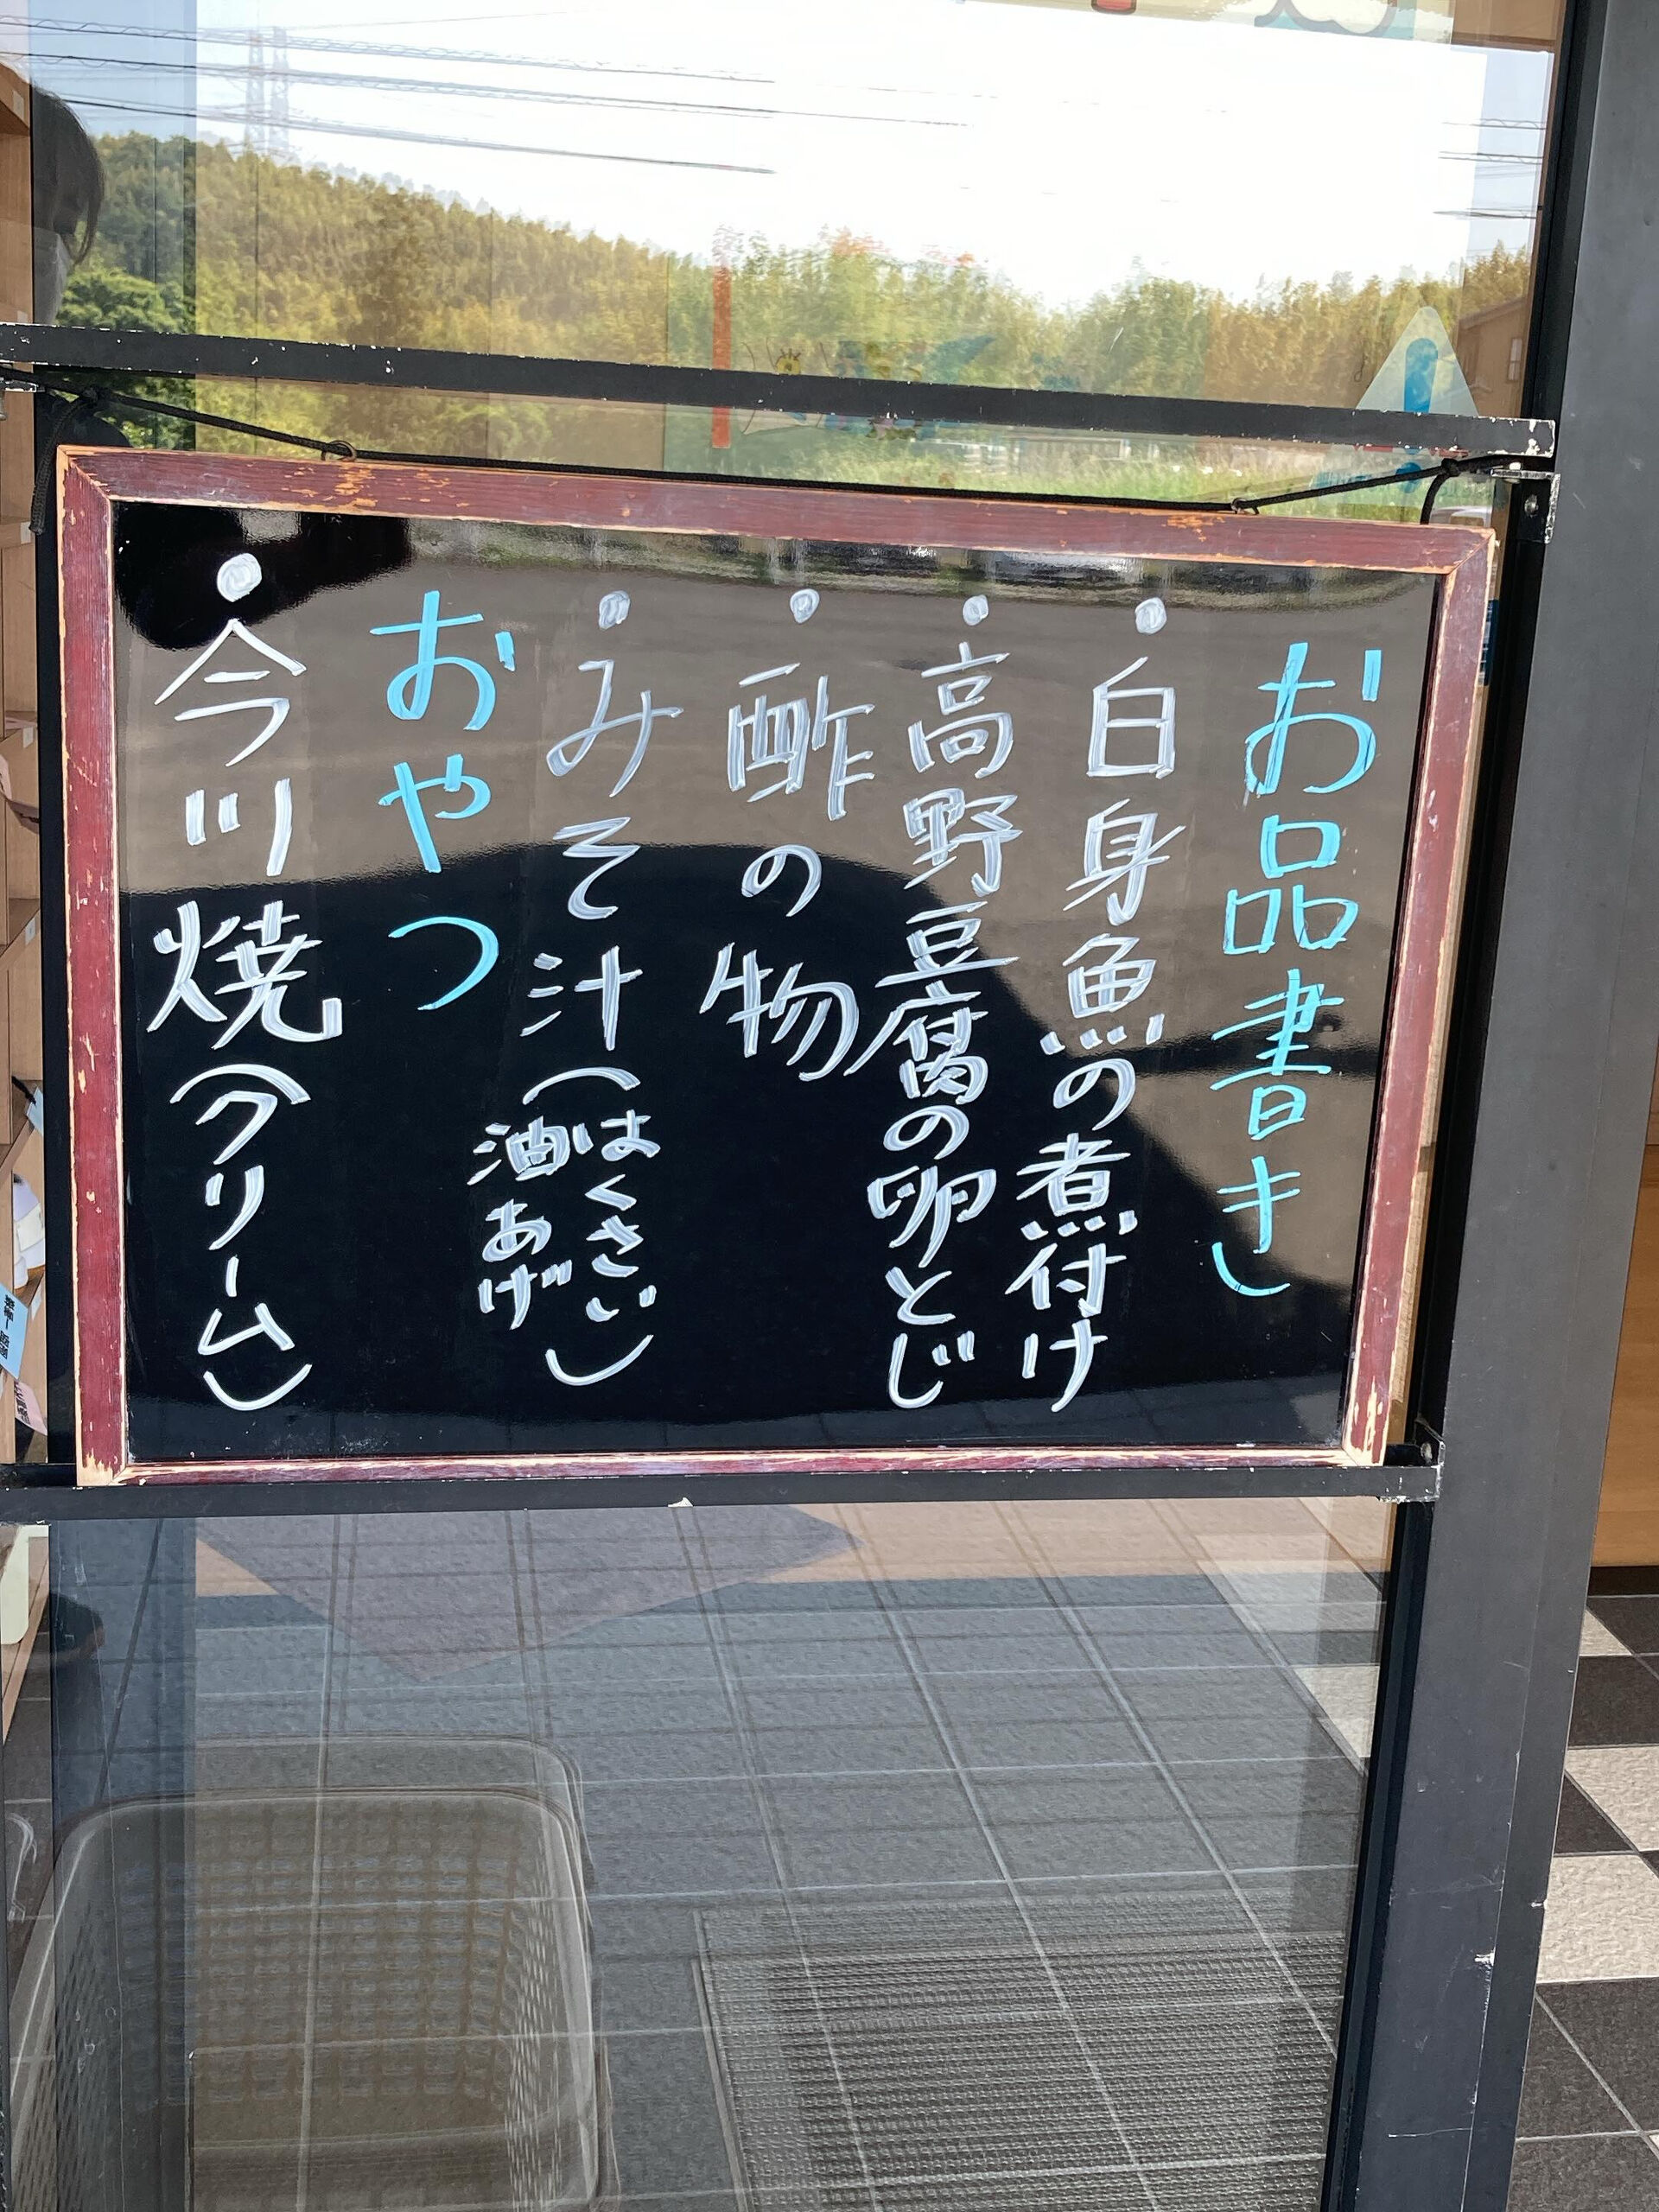 お品書き
・白身魚の煮付け
・高野豆腐の卵とじ
・酢の物
・みそ汁(はくさい
油あげ)
おやつ
・今川焼(クリーム)